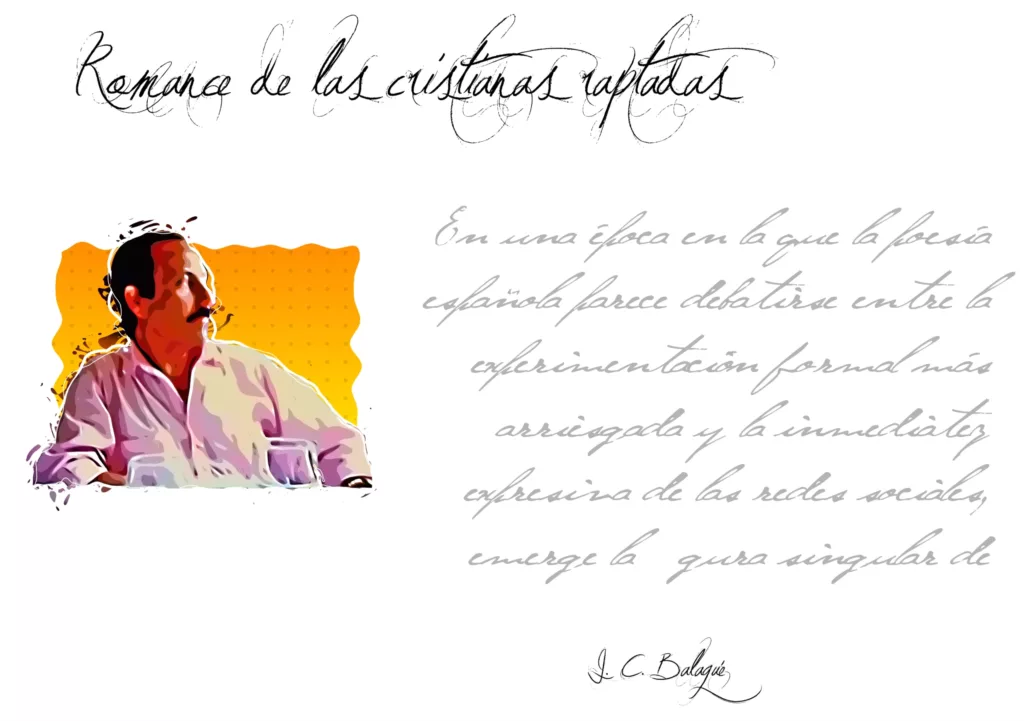 Romance de las cristianas raptadas
En una época en la que la poesía
española parece debatirse entre la
experimentación formal más
arriesgada y la inmediatez
expresiva de las redes sociales,
emerge la gura singular de
J. C. Balagué